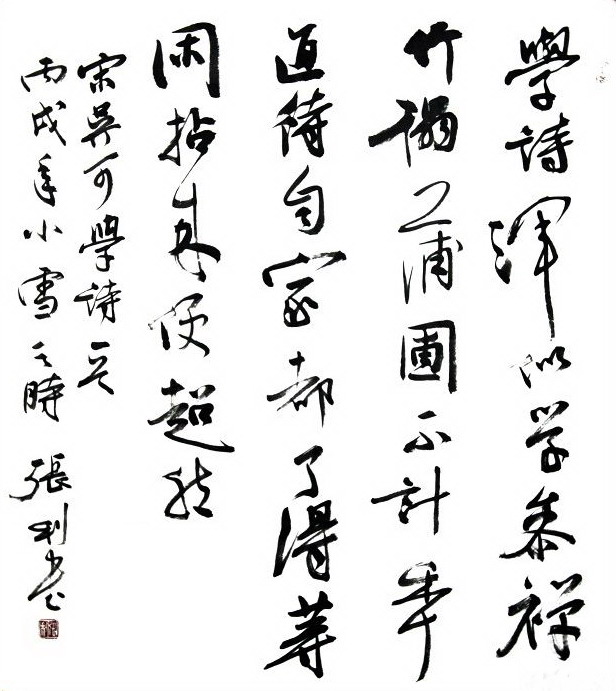 學詩渾似学参禅
竹榻浦團不計年
直待自家都了得等
闲拈来便超然
宋吴可學詩一
丙戌年小雪之時 張利